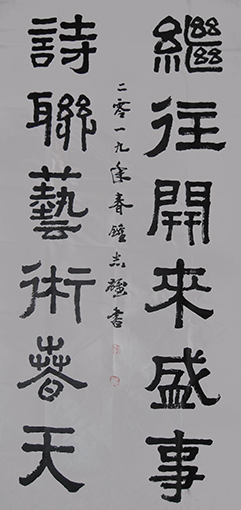 繼往開來盛事
二零一九年春鍾志強書
詩聯藝術春天